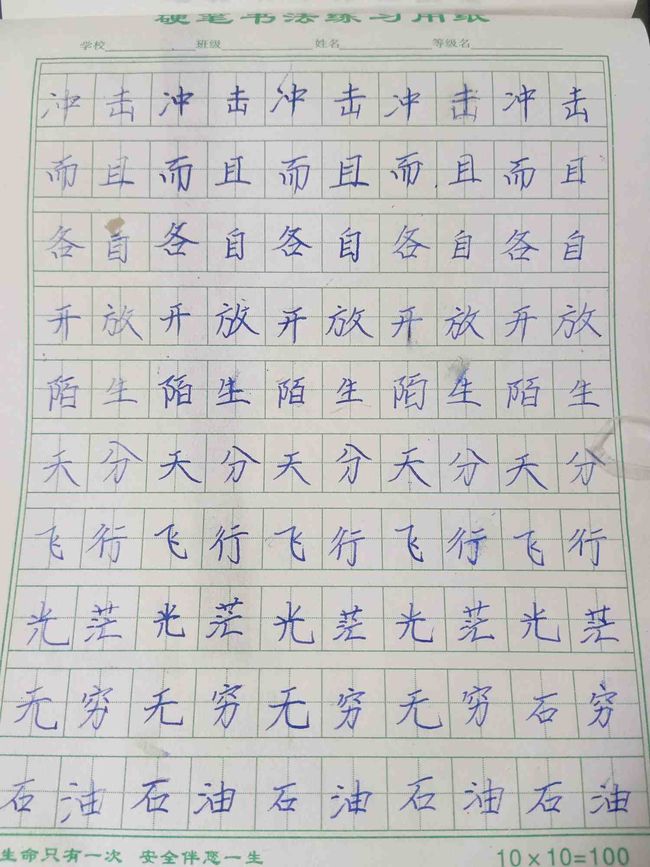 硬笔书法练习用纸
学校 班级 姓名 等级名
冲击冲击冲击冲击冲击
而且而且而且而且而且
各自各自各自各自各自
开放开放开放开放开放
陌生陌生陌生陌生陌生
天分天分天分天分天分
飞行飞行飞行飞行飞行
光茫光茫光茫光茫光茫
无穷无穷无穷无穷石穷
石油石油石油石油石油
生命只有一次 安全伴您一生 10×10=100